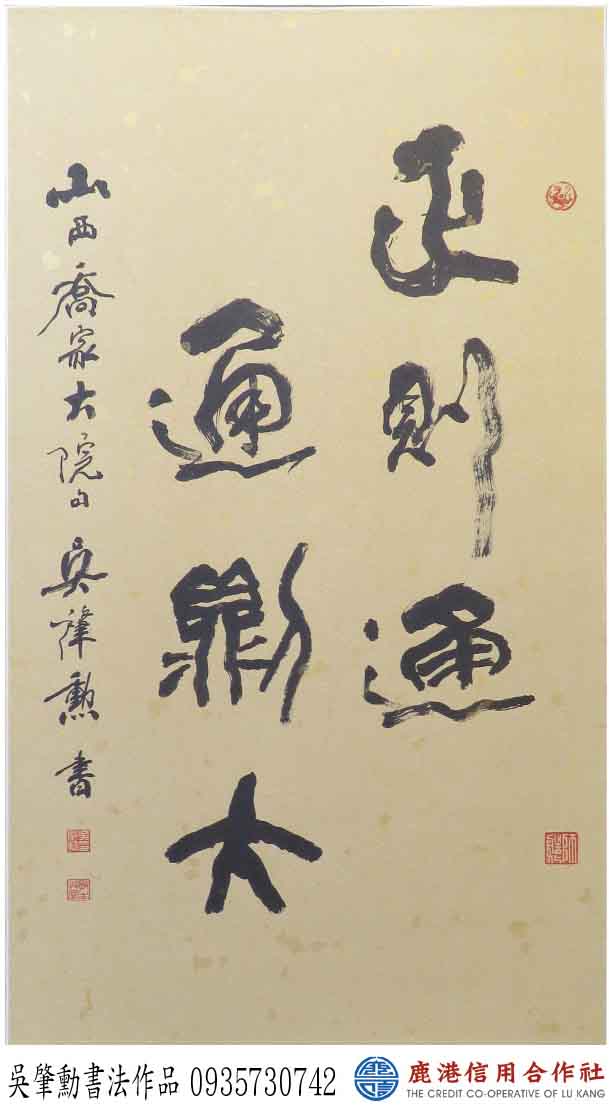 正則通
通則大
山西喬家大院句 吳肇勲 書
吳肇勳書法作品 0935730742
鹿港信用合作社
THE CREDIT CO-OPERATIVE OF LU KANG